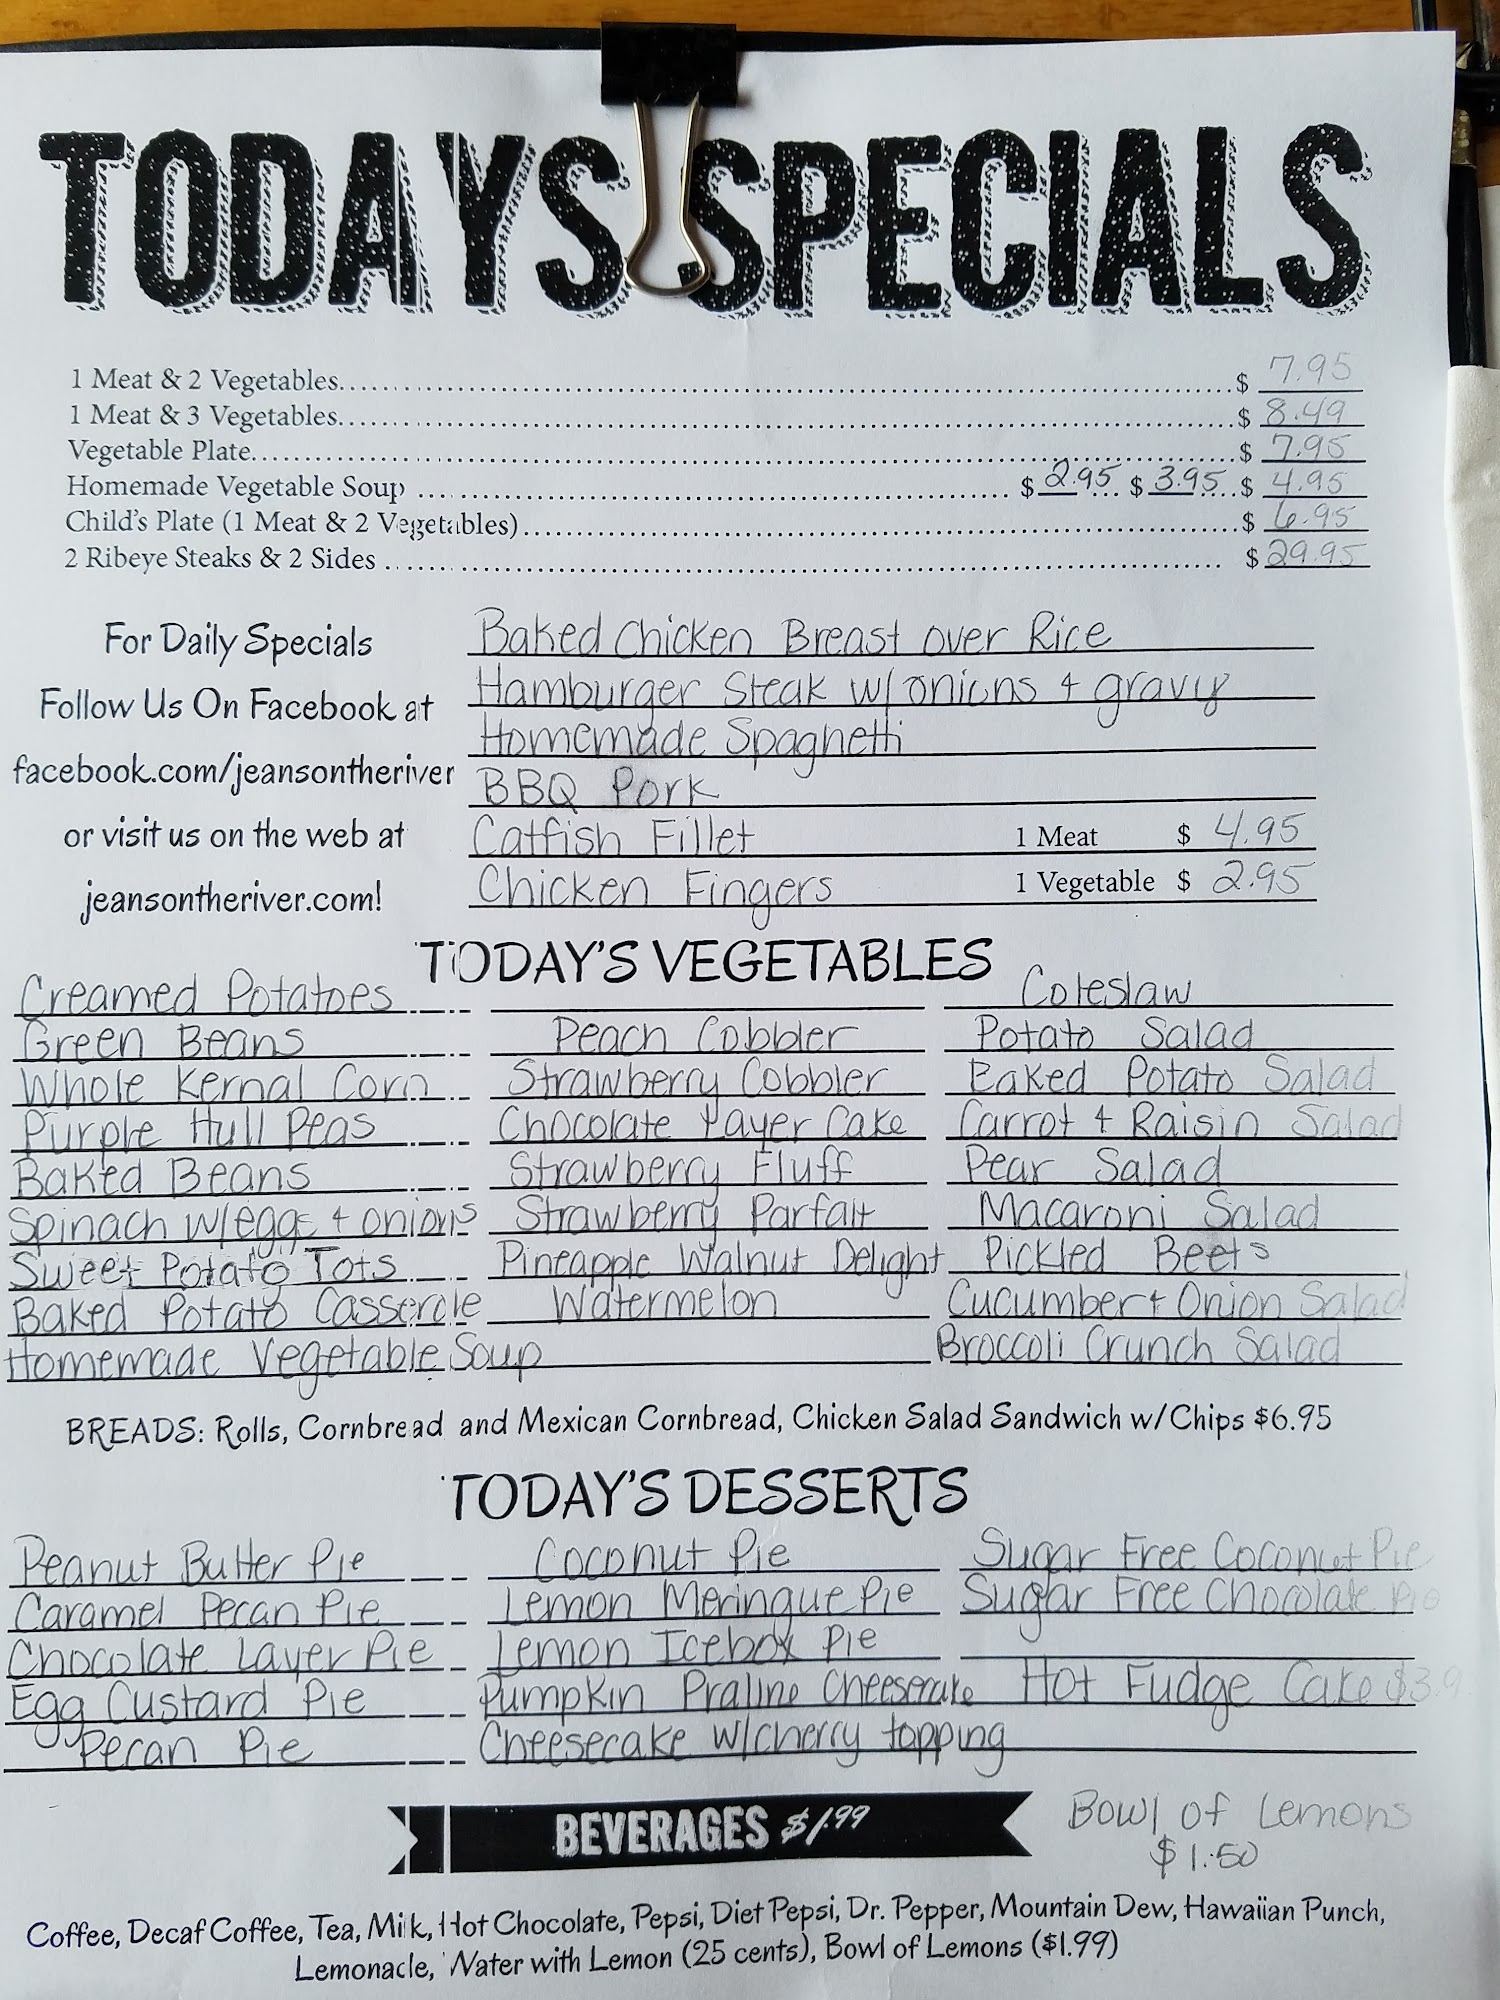 TODAYS SPECIALS
1 Meat & 2 Vegetables $ 7.95
1 Meat & 3 Vegetables $ 8.49
Vegetable Plate $ 7.95
Homemade Vegetable Soup $ 2.95 $ 3.95 $ 4.95
Child's Plate (1 Meat & 2 Vegetables) $ 6.95
2 Ribeye Steaks & 2 Sides $ 29.95
For Daily Specials
Follow Us On Facebook at
facebook.com/jeansontheriver
or visit us on the web at
jeansontheriver.com!
Baked Chicken Breast over Rice
Hamburger Steak w/onions & gravy
Homemade Spaghetti
BBQ Pork
Catfish Fillet 1 Meat $ 4.95
Chicken Fingers 1 Vegetable $ 2.95
TODAY'S VEGETABLES
Creamed Potatoes Coleslaw
Green Beans Peach Cobbler Potato Salad
Whole Kernal Corn Strawberry Cobbler Baked Potato Salad
Purple Hull Peas Chocolate Layer Cake Carrot & Raisin Salad
Baked Beans Strawberry Fluff Pear Salad
Spinach w/eggs & onions Strawberry Parfait Macaroni Salad
Sweet Potato Tots Pineapple Walnut Delight Pickled Beets
Baked Potato Casserole Watermelon Cucumber & Onion Salad
Homemade Vegetable Soup Broccoli Crunch Salad
BREADS: Rolls, Cornbread and Mexican Cornbread, Chicken Salad Sandwich w/Chips $6.95
TODAY'S DESSERTS
Peanut Butter Pie Coconut Pie Sugar Free Coconut Pie
Caramel Pecan Pie Lemon Meringue Pie Sugar Free Chocolate Pie
Chocolate Layer Pie Lemon Icebox Pie
Egg Custard Pie Pumpkin Praline Cheesecake Hot Fudge Cake
Pecan Pie Cheesecake w/cherry topping
BEVERAGES $1.99
Bowl of Lemons
$1.50
Coffee, Decaf Coffee, Tea, Milk, Hot Chocolate, Pepsi, Diet Pepsi, Dr. Pepper, Mountain Dew, Hawaiian Punch,
Lemonade, Water with Lemon (25 cents), Bowl of Lemons ($1.99)